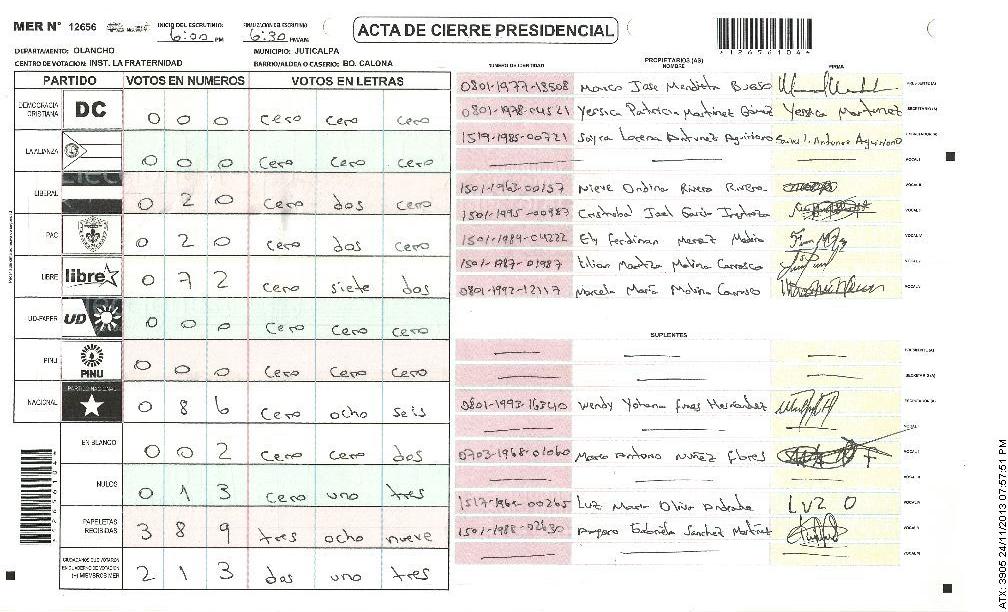 MER N° 12656
INICIO DEL ESCRUTINIO: 6:00 PM
FINALIZACION DEL ESCRUTINIO 6:30 PM/AM
ACTA DE CIERRE PRESIDENCIAL
1 2 6 5 6 1 0 4 4
DEPARTAMENTO: OLANCHO
MUNICIPIO: JUTICALPA
CENTRO DE VOTACION: INST. LA FRATERNIDAD
BARRIO/ALDEA O CASERIO: BO. CALONA
PARTIDO VOTOS EN NUMEROS VOTOS EN LETRAS
DEMOCRACIA CRISTIANA DC 0 0 0 cero cero cero
LA ALIANZA 0 0 0 cero cero cero
LIBERAL 0 2 0 cero dos cero
PAC 0 2 0 cero dos cero
LIBRE libre 0 7 2 cero siete dos
UD-FAPER UD 0 0 0 cero cero cero
PINU PINU 0 0 0 cero cero cero
NACIONAL PARTIDO NACIONAL 0 8 6 cero ocho seis
EN BLANCO 0 0 2 cero cero dos
NULOS 0 1 3 cero uno tres
PAPELETAS RECIBIDAS 3 8 9 tres ocho nueve
CIUDADANOS QUE VOTARON EN CUADERNO DE VOTACION (+) MIEMBROS MER 2 1 3 dos uno tres
PROPIETARIOS (AS)
NUMERO DE IDENTIDAD NOMBRE FIRMA
0801-1977-13508 Marco Jose Mendieta Bueso PRESIDENTE(A)
0801-1978-04521 Yessica Patricia Martinez Gómez Yessica Martinez SECRETARIO(A)
1519-1985-00721 Sayra Lorena Antunez Aguiriano
1501-1963-00157 Nieve Ondina Rivera Rivera
1501-1995-00987 Cristobal Joel García
1501-1989-04222 Ely Ferdinan
1501-1987-01987 Lilian Maritza Molina Carrasco
0801-1992-12117 Marcela María Molina Carrasco
SUPLENTES
PRESIDENTE(A)
SECRETARIO(A)
0801-1993-16340 Wendy Yohana Funes Hernández
0703-1968-01060 Marco Antonio Nuñez Flores
00265 Luz Maria Oliva Andrade LUZ O
1501-1988-02630 Amparo Gabriela Sanchez Martinez
ATX: 3905 24/11/2013 07:57:51 PM